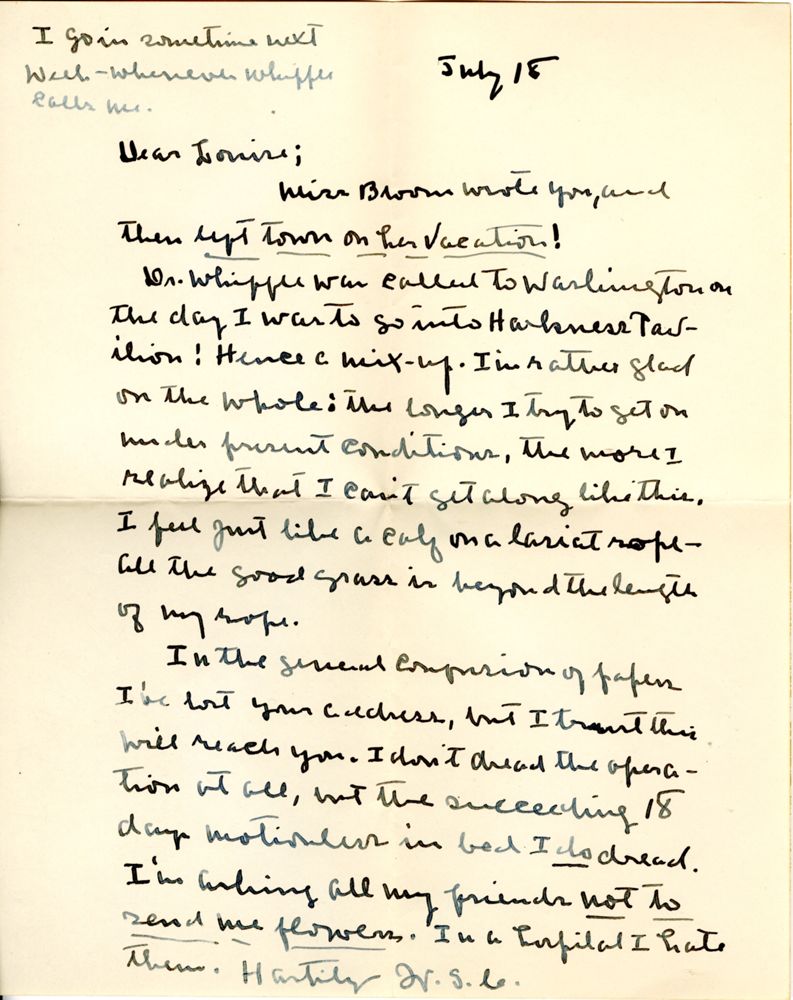 I go in sometime next
Week - whenever Whipple
calls me.
July 18
Dear Louise;
Miss Bloom wrote you, and
then left town on her vacation!
Dr. Whipple was called to Washington on
the day I was to go into Harkness Pav-
ilion! Hence a mix-up. I'm rather glad
on the whole: the longer I try to get on
under present conditions, the more I
realize that I can't get along like this.
I feel just like a calf on a lariat rope-
all the good grass is beyond the length
of my rope.
In the general confusion of papers
I've lost your address, but I trust this
will reach you. I don't dread the opera-
tion at all, but the succeeding 18
days motionless in bed I do dread.
I'm asking all my friends not to
send me flowers. In a hospital I hate
them. Hastily W.S.C.